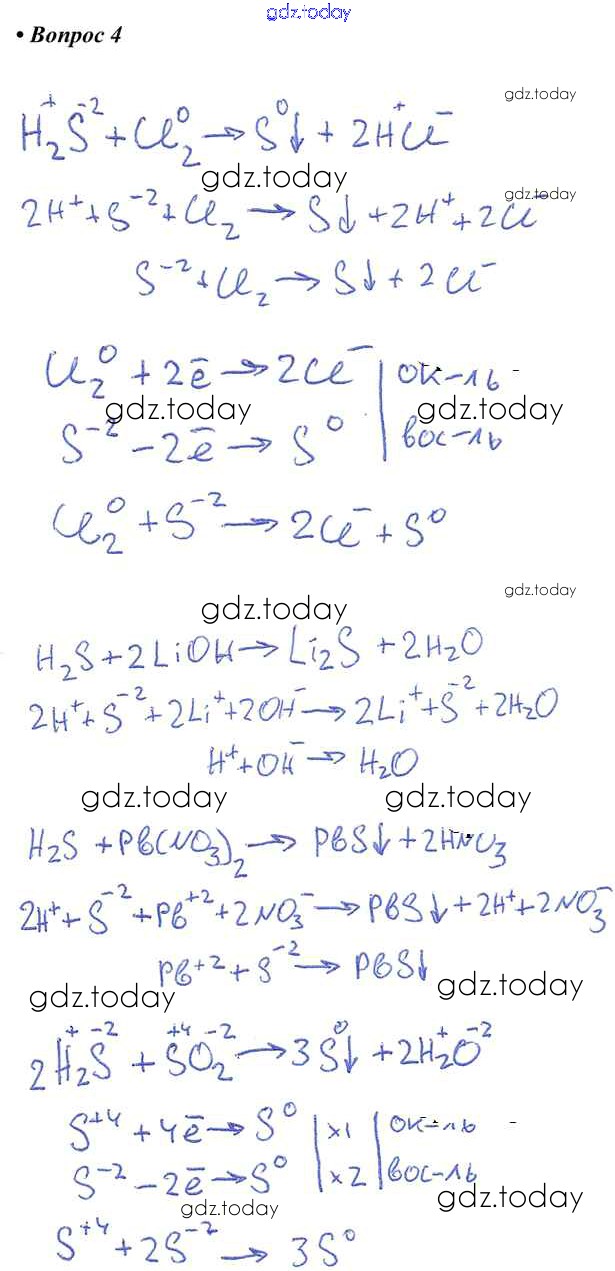 gdz.today
• Вопрос 4
gdz.today
H₂⁺S⁻² + Cl₂⁰ → S⁰↓ + 2H⁺Cl⁻
gdz.today gdz.today
2H⁺ + S⁻² + Cl₂ → S↓ + 2H⁺ + 2Cl⁻
S⁻² + Cl₂ → S↓ + 2Cl⁻
Cl₂⁰ + 2ē → 2Cl⁻ | ок-ль
gdz.today gdz.today
S⁻² - 2ē → S⁰ | вос-ль
Cl₂⁰ + S⁻² → 2Cl⁻ + S⁰
gdz.today
gdz.today
H₂S + 2LiOH → Li₂S + 2H₂O
2H⁺ + S⁻² + 2Li⁺ + 2OH⁻ → 2Li⁺ + S⁻² + 2H₂O
H⁺ + OH⁻ → H₂O
gdz.today gdz.today
H₂S + Pb(NO₃)₂ → PbS↓ + 2HNO₃
2H⁺ + S⁻² + Pb⁺² + 2NO₃⁻ → PbS↓ + 2H⁺ + 2NO₃⁻
Pb⁺² + S⁻² → PbS↓
gdz.today gdz.today
2H₂⁺S⁻² + S⁺⁴O₂⁻² → 3S⁰↓ + 2H₂⁺O⁻²
S⁺⁴ + 4ē → S⁰ | x1 | ок-ль
S⁻² - 2ē → S⁰ | x2 | вос-ль
gdz.today gdz.today
S⁺⁴ + 2S⁻² → 3S⁰